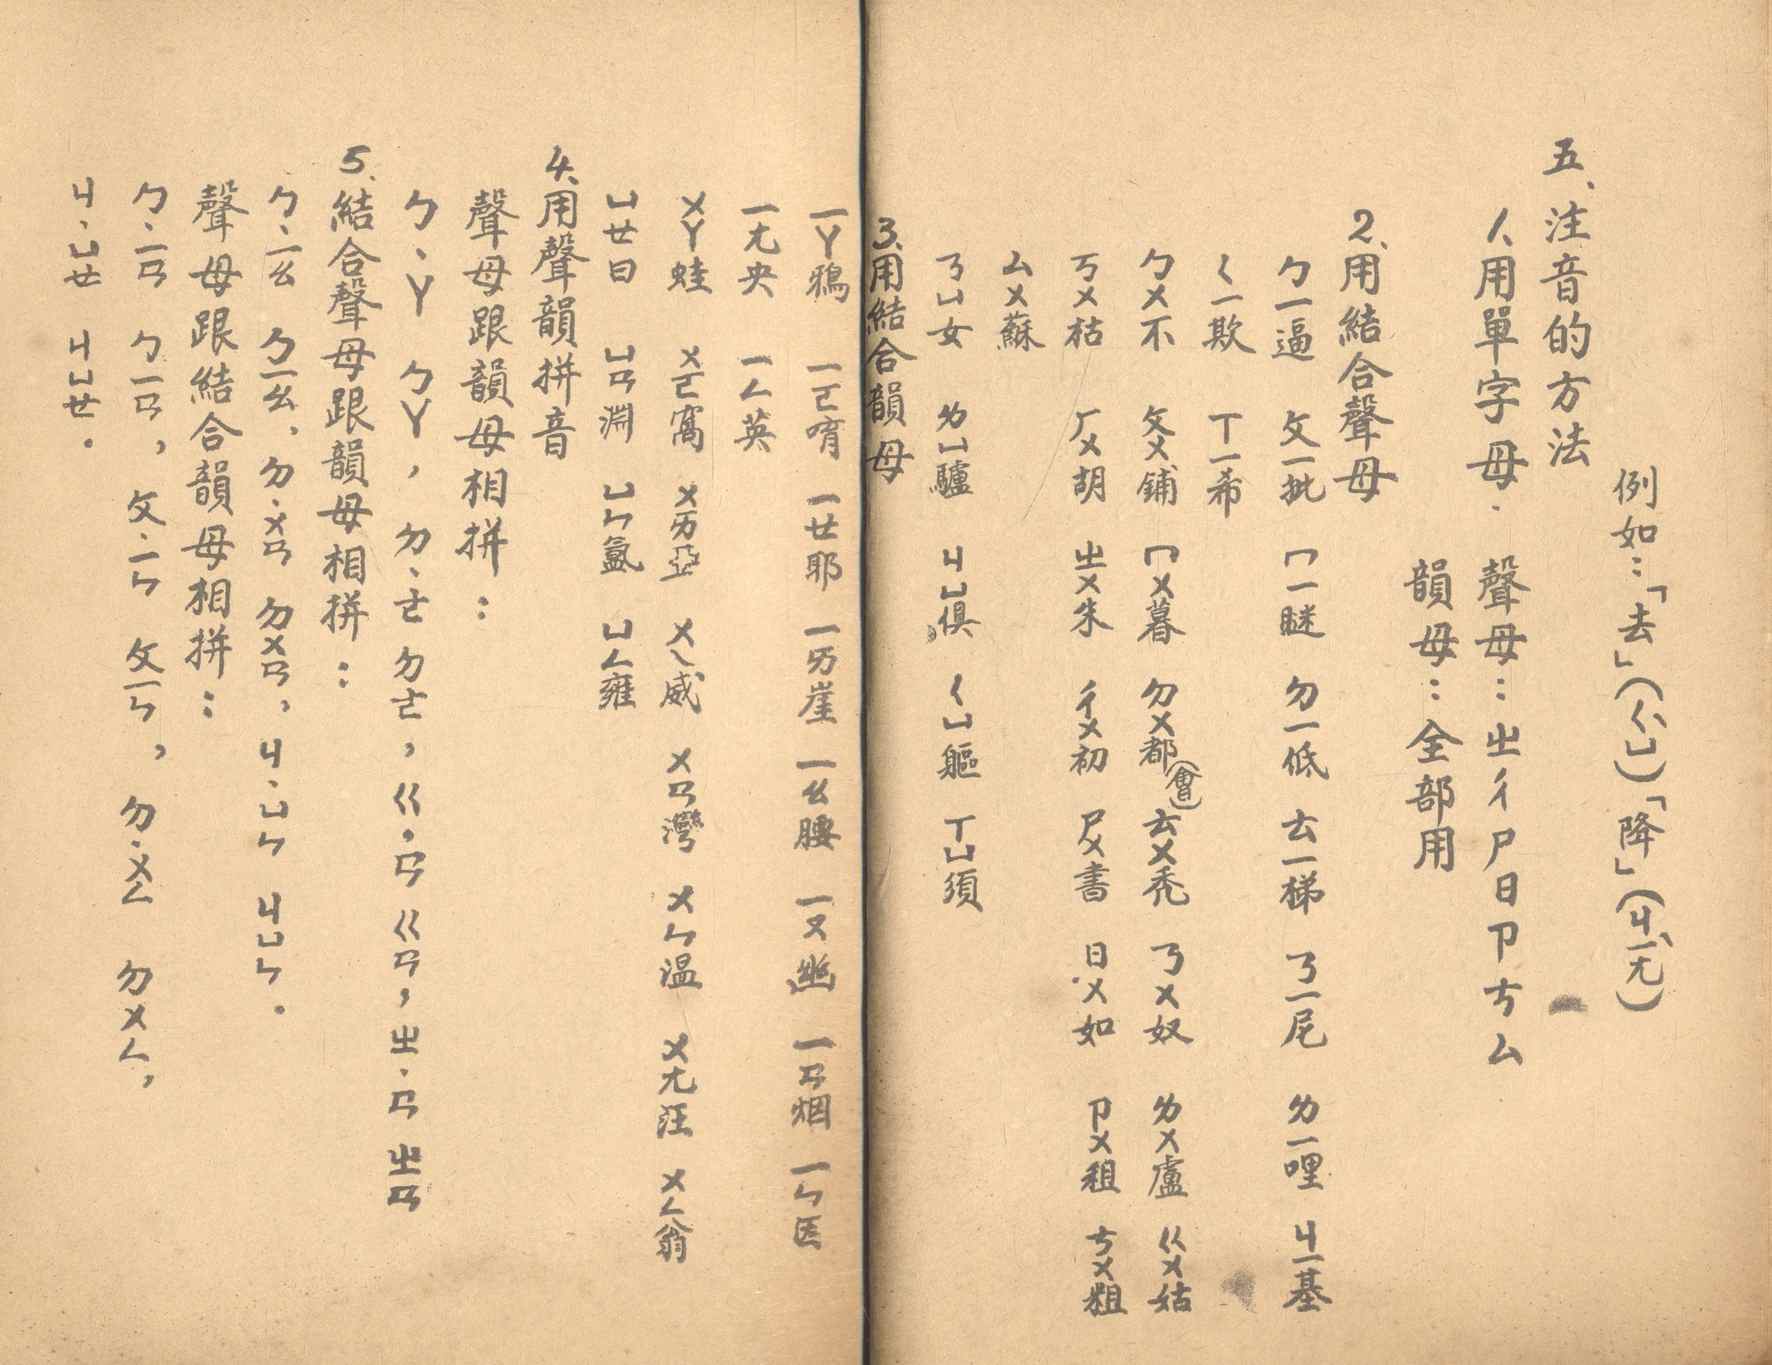 例如：「去」（ㄑㄩˋ）「降」（ㄐㄧㄤˋ）
五、注音的方法
1、用單字母． 聲母：ㄓㄔㄕㄖㄗㄘㄙ
韻母：全部用
2、用結合聲母
ㄅㄧ逼 ㄆㄧ批 ㄇㄧ瞇 ㄉㄧ低 ㄊㄧ梯 ㄋㄧ尼 ㄌㄧ哩 ㄐㄧ基
ㄑㄧ欺 ㄒㄧ希
ㄅㄨ不 ㄆㄨ鋪 ㄇㄨ暮 ㄉㄨ都（會） ㄊㄨ禿 ㄋㄨ奴 ㄌㄨ盧 ㄍㄨ姑
ㄎㄨ枯 ㄏㄨ胡 ㄓㄨ朱 ㄔㄨ初 ㄕㄨ書 ㄖㄨ如 ㄗㄨ租 ㄘㄨ粗
ㄙㄨ蘇
ㄋㄩ女 ㄌㄩ驢 ㄐㄩ俱 ㄑㄩ軀 ㄒㄩ須
3、用結合韻母
ㄧㄚ鴉 ㄧㄛ唷 ㄧㄝ耶 ㄧㄞ崖 ㄧㄠ腰 ㄧㄡ幽 ㄧㄢ烟 ㄧㄣ因
ㄧㄤ央 ㄧㄥ英
ㄨㄚ蛙 ㄨㄛ窩 ㄨㄞ ㄨㄟ威 ㄨㄢ灣 ㄨㄣ温 ㄨㄤ汪 ㄨㄥ翁
ㄩㄝ曰 ㄩㄢ淵 ㄩㄣ氳 ㄩㄥ雍
4、用聲韻拼音
聲母跟韻母相拼：
ㄅ、ㄚ ㄅㄚ，ㄉ、ㄜ ㄉㄜ，ㄍ．ㄢ ㄍㄢ，ㄓ．ㄢ ㄓㄢ
5、結合聲母跟韻母相拼：
ㄅ．ㄧㄠ ㄅㄧㄠ．ㄉ．ㄨㄢ ㄉㄨㄢ，ㄐ．ㄩㄣ ㄐㄩㄣ。
聲母跟結合韻母相拼：
ㄅ．ㄧㄢ ㄅㄧㄢ，ㄆ．ㄧㄣ ㄆㄧㄣ，ㄉ．ㄨㄥ ㄉㄨㄥ，
ㄐ．ㄩㄝ ㄐㄩㄝ。